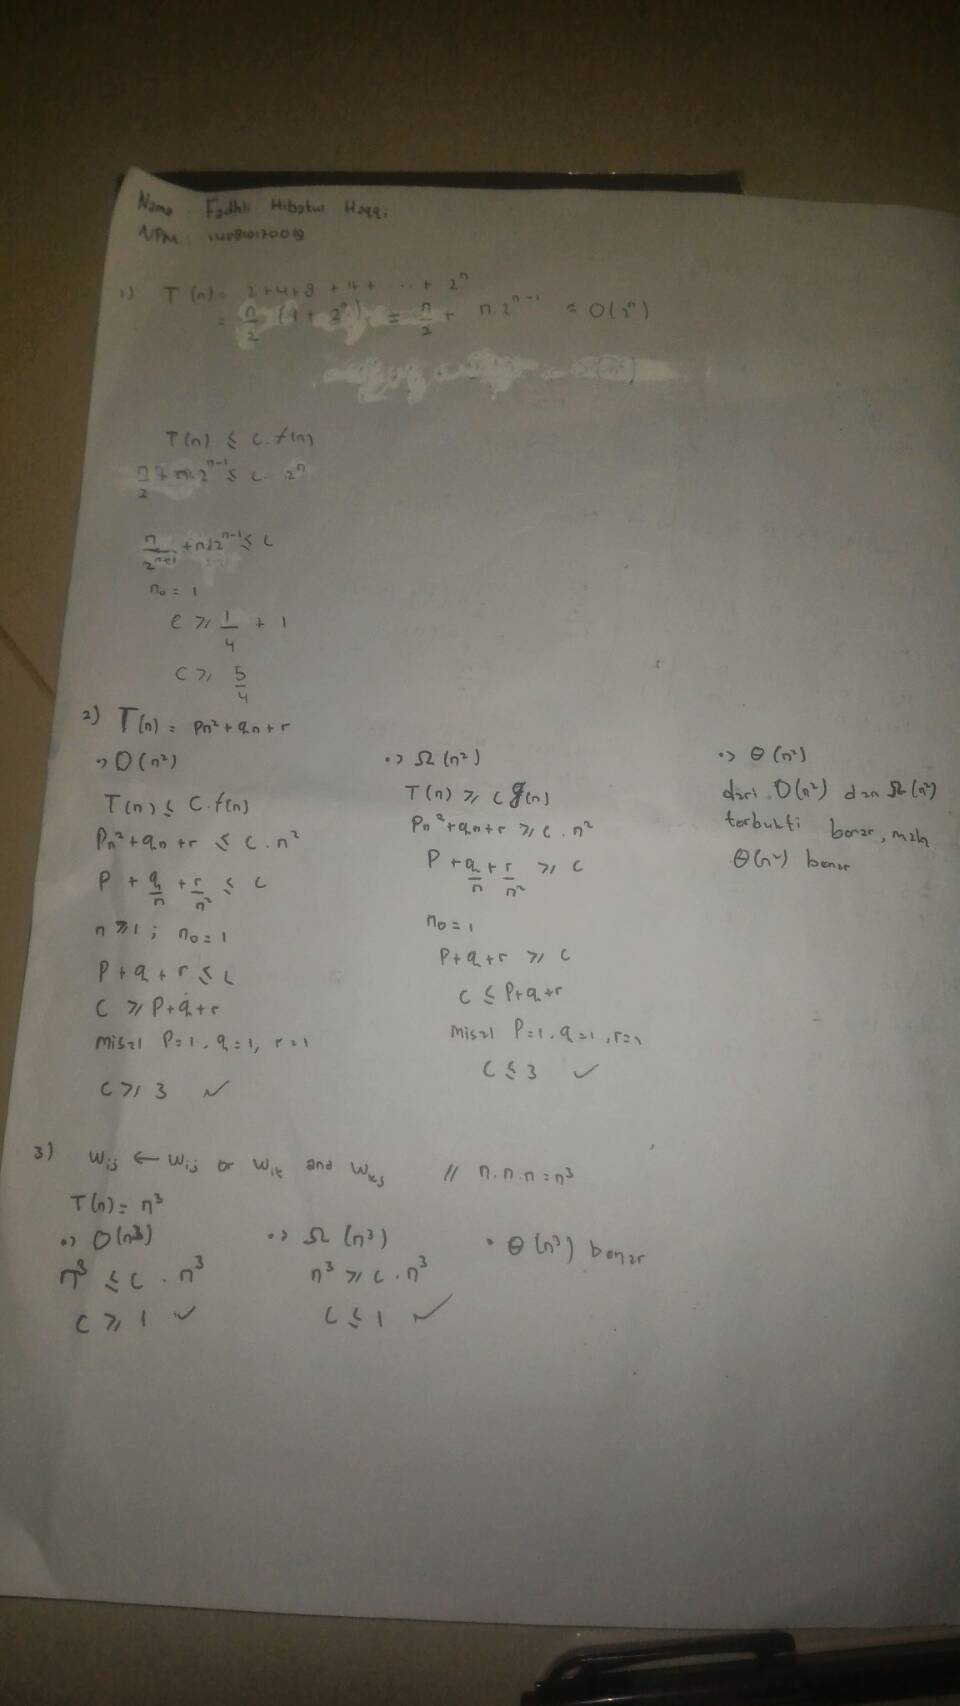 Nama : Fadhli Hibatul Haqqi
NPM : 140810170019
1) T(n) = 2+4+8+16+ ... + 2ⁿ
= n/2 (1 + 2ⁿ) = n/2 + n.2ⁿ⁻¹ = O(2ⁿ)
T(n) ≤ c.f(n)
n/2 + n.2ⁿ⁻¹ ≤ c. 2ⁿ
≤ c
n₀ = 1
c ≥ 1/4 + 1
c ≥ 5/4
2) T(n) = pn² + qn + r
·> O(n²)
T(n) ≤ C.f(n)
Pn² + qn + r ≤ c.n²
P + q/n + r/n² ≤ c
n ≥ 1 ; n₀ = 1
P + q + r ≤ c
C ≥ P+q+r
misal P=1, q=1, r=1
C ≥ 3 ✓
·> Ω(n²)
T(n) ≥ c g(n)
Pn²+qn+r ≥ c.n²
P + q/n + r/n² ≥ c
n₀ = 1
P+q+r ≥ c
c ≤ P+q+r
misal P=1, q=1, r=1
C ≤ 3 ✓
·> Θ(n²)
dari O(n²) dan Ω(n²)
terbukti benar, maka
Θ(n²) benar
3) Wij ← Wij or Wik and Wkj // n.n.n = n³
T(n) = n³
·> O(n³)
n³ ≤ c . n³
C ≥ 1 ✓
·> Ω(n³)
n³ ≥ c . n³
C ≤ 1 ✓
· Θ(n³) benar